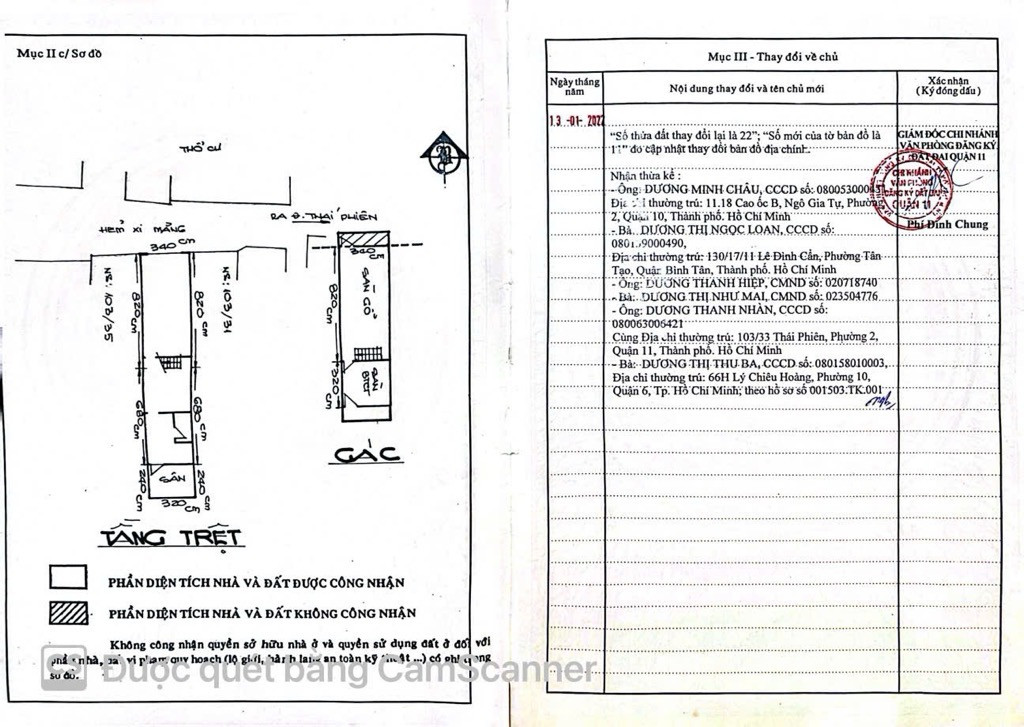 Mục II c/ Sơ đồ
THỔ CƯ
RA Đ. THÁI PHIÊN
HẺM XI MĂNG
340 cm
340 cm
NS: 103/35
820 cm
820 cm
NS: 103/31
SÀN GỖ
820 cm
SÀN
320 cm
680 cm
680 cm
GÁC
SÂN
240 cm
240 cm
320 cm
TẦNG TRỆT
PHẦN DIỆN TÍCH NHÀ VÀ ĐẤT ĐƯỢC CÔNG NHẬN
PHẦN DIỆN TÍCH NHÀ VÀ ĐẤT KHÔNG CÔNG NHẬN
Không công nhận quyền sở hữu nhà ở và quyền sử dụng đất ở đối với
phần nhà, vi phạm quy hoạch (lộ giới, hành lang an toàn kỹ thuật ...) có ghi trong
sơ đồ.
CS Được quét bằng CamScanner
Mục III - Thay đổi về chủ
Ngày tháng năm
Nội dung thay đổi và tên chủ mới
Xác nhận
(Ký đóng dấu)
13 -01- 2022
"Số thửa đất thay đổi lại là 22"; "Số mới của tờ bản đồ là
11" do cập nhật thay đổi bản đồ địa chính.
GIÁM ĐỐC CHI NHÁNH
VĂN PHÒNG ĐĂNG KÝ
ĐẤT ĐAI QUẬN 11
CHI NHÁNH
VĂN PHÒNG
ĐĂNG KÝ ĐẤT ĐAI
QUẬN 11
Phí Đình Chung
Nhận thừa kế :
- Ông: DƯƠNG MINH CHÂU, CCCD số:
Địa chỉ thường trú: 11.18 Cao ốc B, Ngô Gia Tự, Phường
2, Quận 10, Thành phố. Hồ Chí Minh
- Bà: DƯƠNG THỊ NGỌC LOAN, CCCD số:
Địa chỉ thường trú: 130/17/11 Lê Đình Cẩn, Phường Tân
Tạo, Quận Bình Tân, Thành phố. Hồ Chí Minh
- Ông: DƯƠNG THANH HIỆP, CMND số: 020718740
- Bà: DƯƠNG THỊ NHƯ MAI, CMND số: 023504776
- Ông: DƯƠNG THANH NHÀN, CCCD số:
080063006421
Cùng Địa chỉ thường trú: 103/33 Thái Phiên, Phường 2,
Quận 11, Thành phố. Hồ Chí Minh
- Bà: DƯƠNG THỊ THU BA, CCCD số: 080158010003,
Địa chỉ thường trú: 66H Lý Chiêu Hoàng, Phường 10,
Quận 6, Tp. Hồ Chí Minh; theo hồ sơ số 001503.TK.001